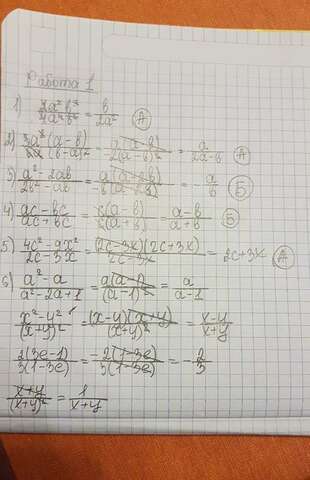 Работа 1
1) 2a²b³/4a⁴b² = b/2a² (А)
2) 3a²(a-b)/6a(b-a)² = a(a-b)/2(a-b)² = a/2a-b (А)
3) a²-2ab/2b²-ab = a(a-2b)/-b(a-2b) = -a/b (Б)
4) ac-bc/ac+bc = c(a-b)/c(a+b) = a-b/a+b (Б)
5) 4c²-9x²/2c-3x = (2c-3x)(2c+3x)/2c-3x = 2c+3x (А)
6) a²-a/a²-2a+1 = a(a-1)/(a-1)² = a/a-1
x²-y²/(x+y)² = (x-y)(x+y)/(x+y)² = x-y/x+y
2(3e-1)/3(1-3e) = -2(1-3e)/3(1-3e) = -2/3
x+y/(x+y)² = 1/x+y